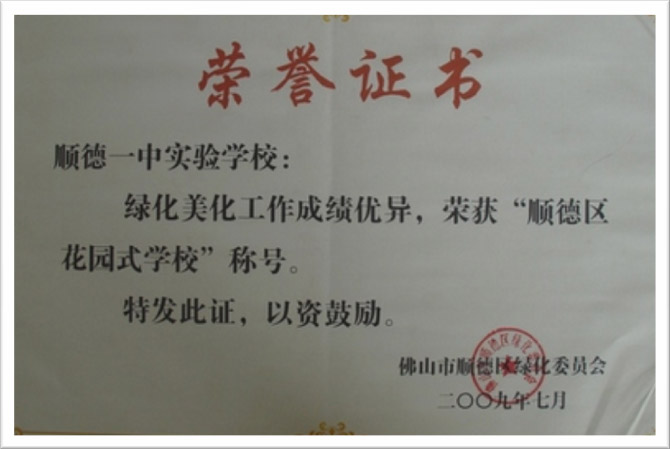 荣誉证书
顺德一中实验学校：
绿化美化工作成绩优异，荣获“顺德区
花园式学校”称号。
特发此证，以资鼓励。
佛山市顺德区绿化委员会
二〇〇九年七月